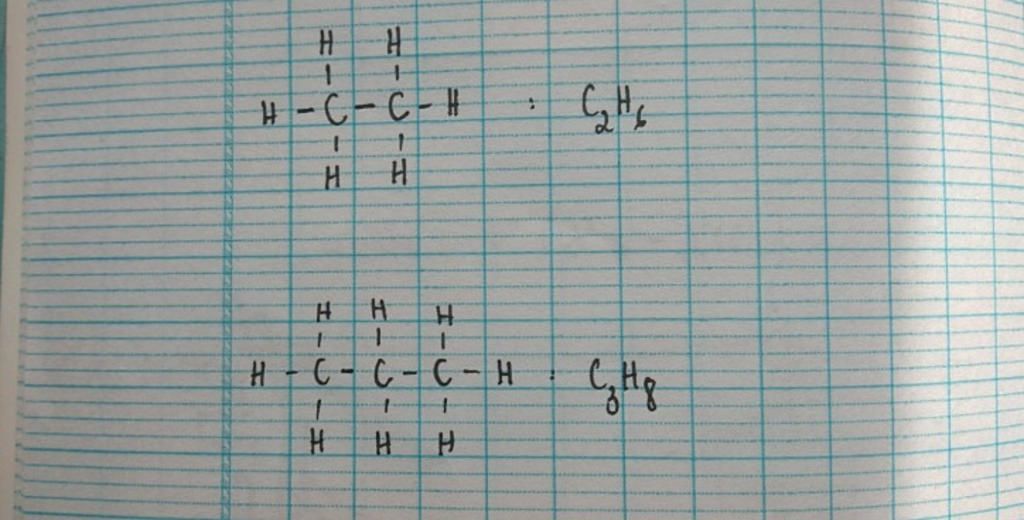 H H
| |
H - C - C - H : C₂H₆
| |
H H
H H H
| | |
H - C - C - C - H : C₃H₈
| | |
H H H